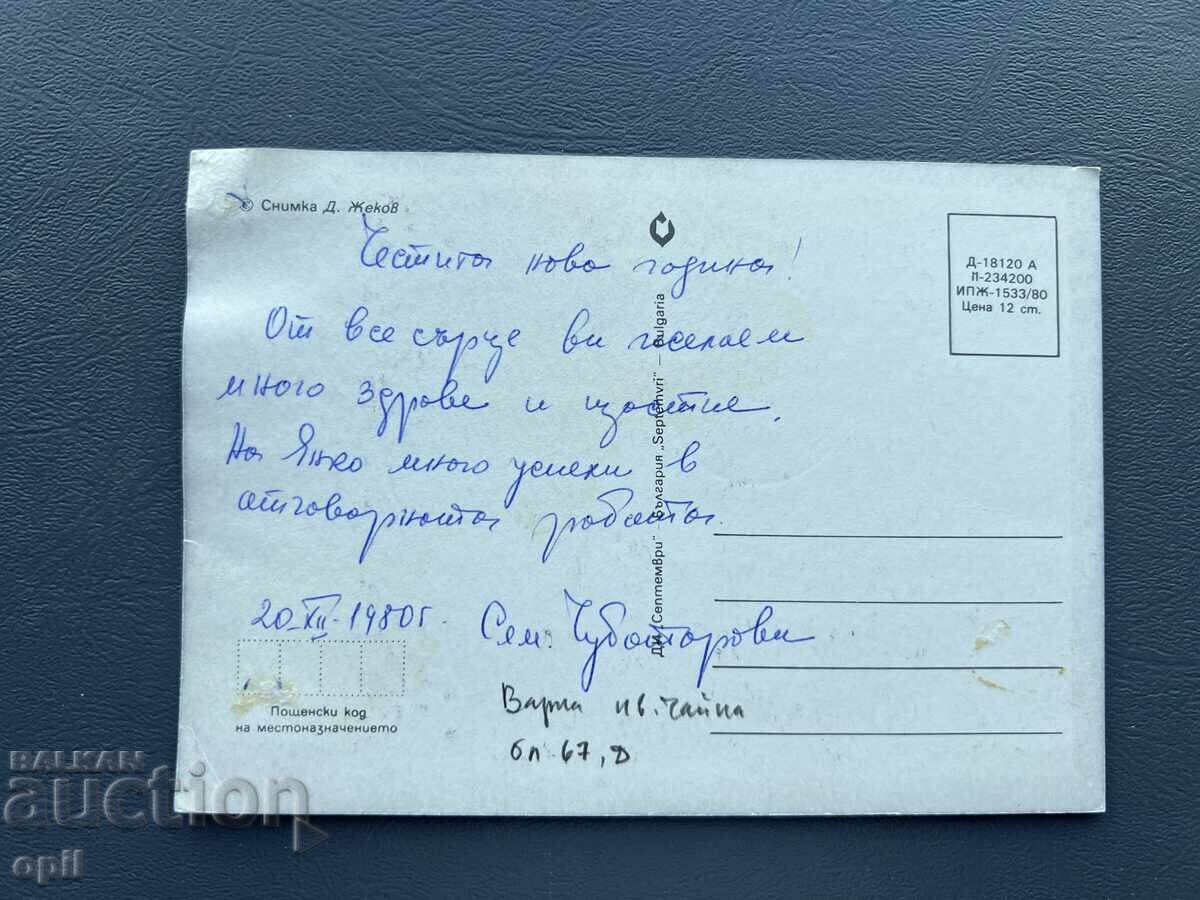 © Снимка Д. Жеков
Честита нова година!
От все сърце ви желаем
много здраве и щастие.
На Янко много успехи в
отговорната работа.
20-XII-1980г. Сем. Чуботарови
Варна кв. Чайка
бл 67, В
Пощенски код
на местоназначението
ДИ „Септември“ – България „Septemvri“ – Bulgaria
Д-18120 А
П-234200
ИПЖ-1533/80
Цена 12 ст.
BALKAN
auction
opil